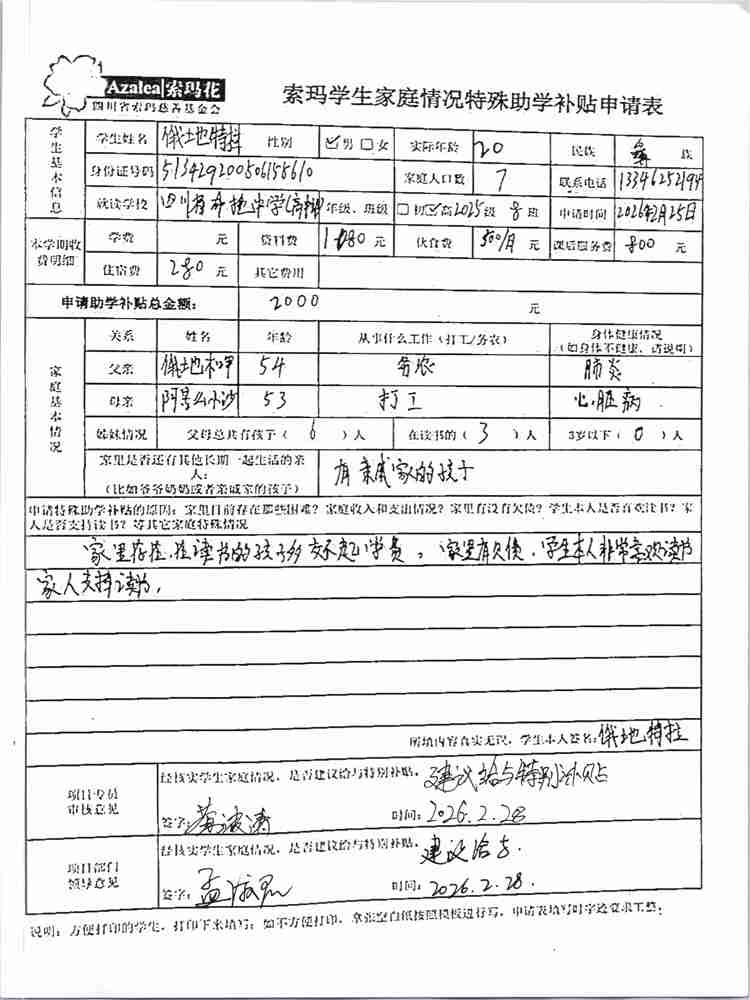 Azalea 索玛花
四川省索玛慈善基金会
索玛学生家庭情况特殊助学补贴申请表
学生基本信息
学生姓名 俄地特拉 性别 ☑男 □女 实际年龄 20 民族 彝 族
身份证号码 513429200506155610 家庭人口数 7 联系电话
就读学校 年级、班级 □初☑高2025级 8班 申请时间 2026年2月25日
本学期收费明细
学费 元 资料费 1080元 伙食费 500/月 元 课后服务费 800 元
住宿费 280 元 其它费用
申请助学补贴总金额: 2000 元
家庭基本情况
关系 姓名 年龄 从事什么工作(打工/务农) 身体健康情况(如身体不健康,请说明)
父亲 俄地木呷 54 务农 肺炎
母亲 53 打工 心脏病
姊妹情况 父母总共有孩子( 6 )人 在读书的( 3 )人 3岁以下( 0 )人
家里是否还有其他长期一起生活的亲人:
(比如爷爷奶奶或者亲戚家的孩子)
有亲戚家的孩子
申请特殊助学补贴的原因:家里目前存在哪些困难?家庭收入和支出情况?家里有没有欠债?学生本人是否喜欢读书?家
人是否支持读书?等其它家庭特殊情况
家里存在,在读书的孩子多交不起学费。家里有欠债,学生本人非常喜欢读书
家人支持读书,
所填内容真实无误,学生本人签名:俄地特拉
项目专员审核意见
经核实学生家庭情况,是否建议给与特别补贴, 建议给与特别补贴
签字: 时间:2026.2.28
项目部门领导意见
经核实学生家庭情况,是否建议给与特别补贴, 建议给予.
签字: 时间:2026.2.28.
说明:方便打印的学生,打印下来填写;如不方便打印,拿张空白纸按照模板进行写,申请表填写时字迹要求工整;